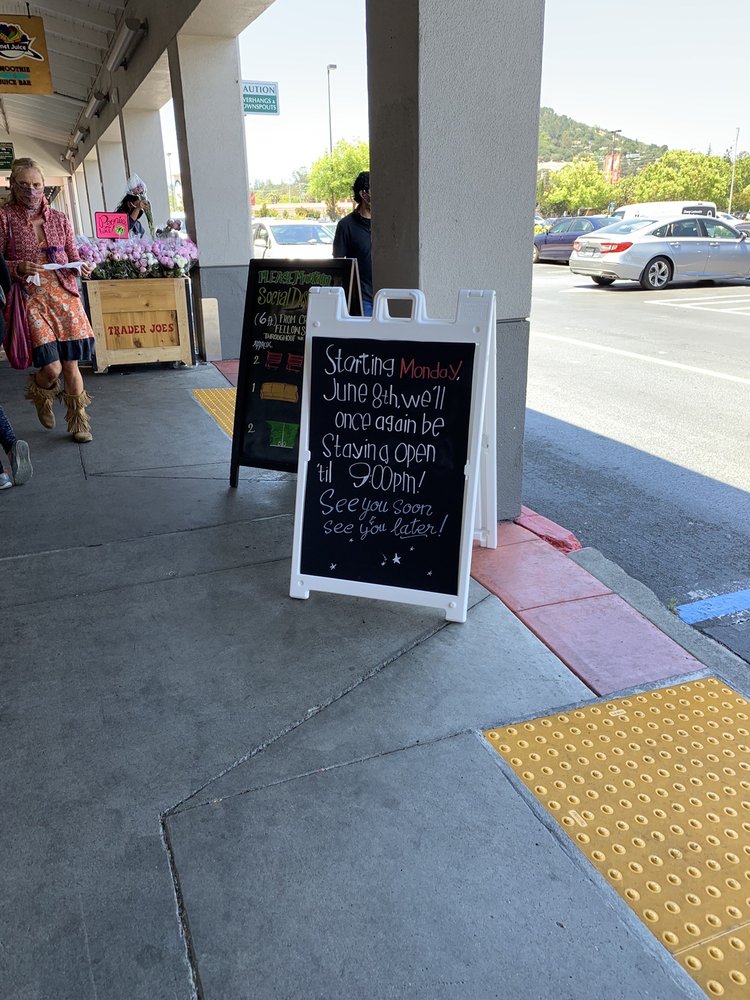 Juice
SMOOTHIE
JUICE BAR
AUTION
VERHANGS &
OWNSPOUTS
TRADER JOES
PLEASE
Social
(6ft) FROM
FELLOW
THROUGHOUT
2
1
2
Starting Monday,
June 8th, we'll
once again be
Staying open
'til 9:00pm!
See you soon
& see you later!